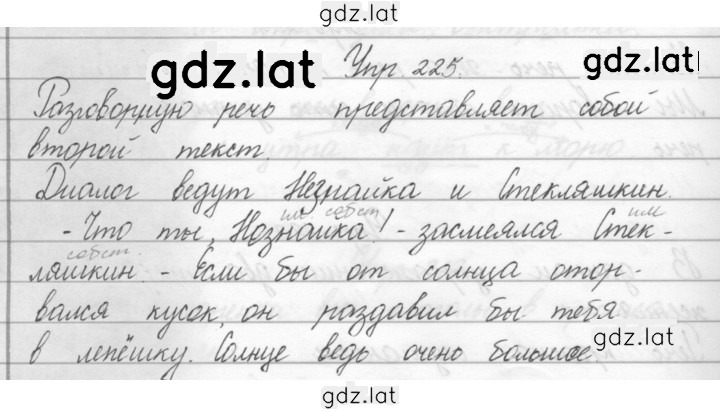 gdz.lat
gdz.lat Упр. 225. gdz.lat
Разговорную речь представляет собой
второй текст.
Диалог ведут Незнайка и Стекляшкин.
им. собст. им
- Что ты, Нознайка! - засмеялся Стек-
собст.
ляшкин. - Если бы от солнца отор-
вался кусок, он раздавил бы тебя
gdz.lat
в лепёшку. Солнце ведь очень большое.
gdz.lat